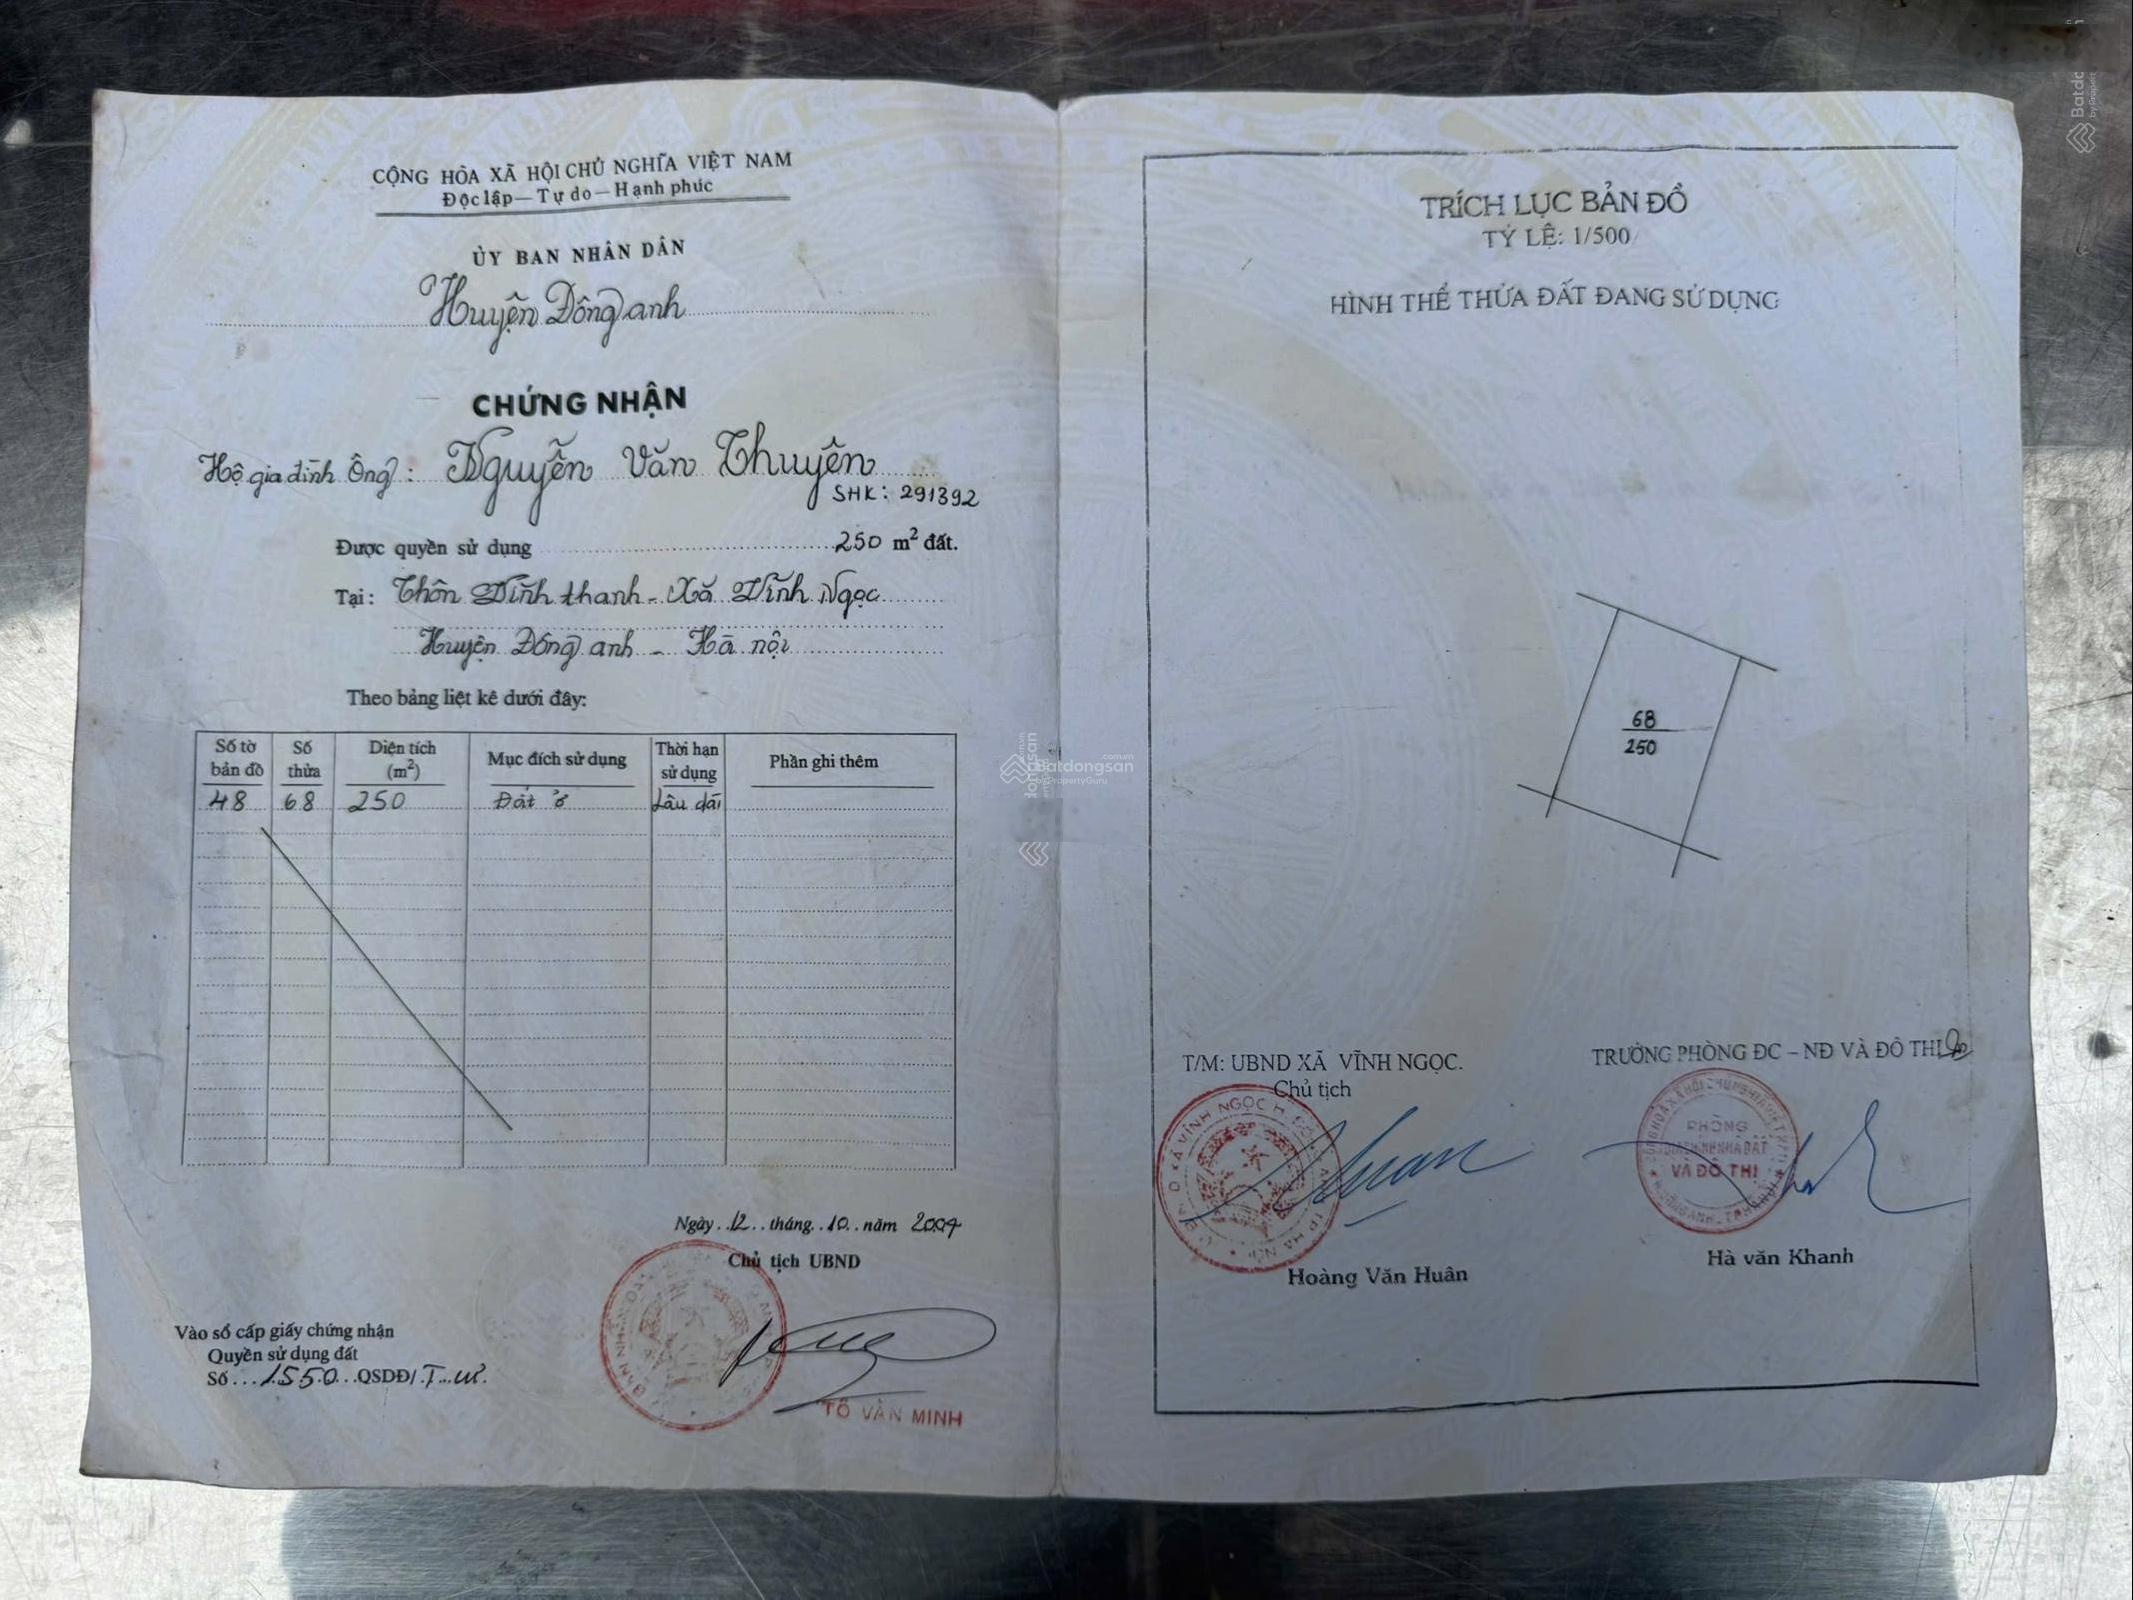 CỘNG HÒA XÃ HỘI CHỦ NGHĨA VIỆT NAM
Độc lập — Tự do — Hạnh phúc
ỦY BAN NHÂN DÂN
Huyện Đông anh
CHỨNG NHẬN
Hộ gia đình Ông: Nguyễn Văn Thuyên
SHK: 291392
Được quyền sử dụng 250 m² đất.
Tại: Thôn Vĩnh thanh - Xã Vĩnh Ngọc
Huyện Đông anh - Hà nội
Theo bảng liệt kê dưới đây:
Số tờ bản đồ Số thửa Diện tích (m²) Mục đích sử dụng Thời hạn sử dụng Phần ghi thêm
48 68 250 Đất ở Lâu dài
Ngày 12 tháng 10 năm
Chủ tịch UBND
Vào sổ cấp giấy chứng nhận
Quyền sử dụng đất
Số 1550 QSDĐ/
TÔ VĂN MINH
TRÍCH LỤC BẢN ĐỒ
TỶ LỆ: 1/500
HÌNH THỂ THỬA ĐẤT ĐANG SỬ DỤNG
68
250
T/M: UBND XÃ VĨNH NGỌC.
Chủ tịch
Hoàng Văn Huân
TRƯỞNG PHÒNG ĐC – NĐ VÀ ĐÔ THỊ
PHÒNG
ĐỊA CHÍNH NHÀ ĐẤT
VÀ ĐÔ THỊ
Hà văn Khanh
Batdongsan
.com.vn
by PropertyGuru